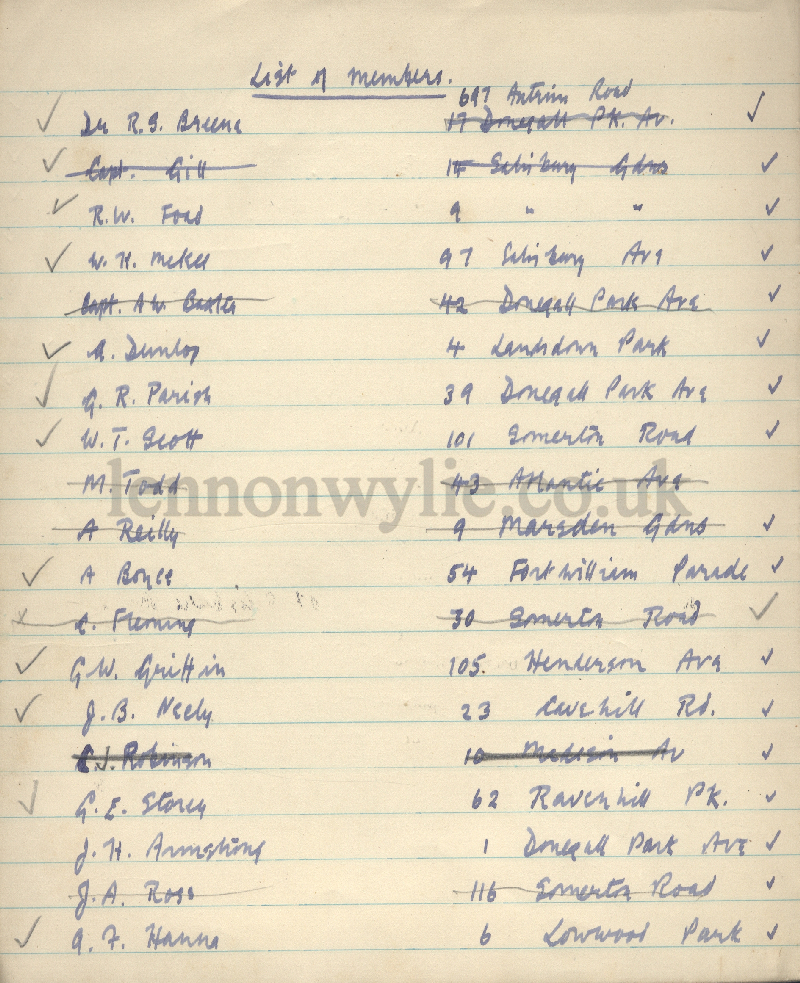 List of members.
697 Antrim Road
Dr R.G. Breene 17 Donegall Pk. Av.
Capt. Gill 14 Salisbury Gdns
R.W. Foad 9 " "
W. H. McKee 97 Salisbury Ave
Capt. A.W. Baxter 42 Donegall Park Ave
A. Dunlop 4 Lansdown Park
G. R. Parish 39 Donegall Park Ave
W. T. Scott 101 Somerton Road
M. Todd 43 Atlantic Ave
lennonwylie.co.uk
A Reilly 9 Marsden Gdns
A Boyce 54 Fortwilliam Parade
Fleming 30 Somerton Road
G.W. Griffin 105. Henderson Ave
J. B. Neely 23 Cavehill Rd.
J. Robinson 10 Madison Av
G. E. Storey 62 Ravenhill Pk.
J. H. Armstrong 1 Donegall Park Ave
J. A. Ross 116 Somerton Road
A. F. Hanna 6 Lowwood Park